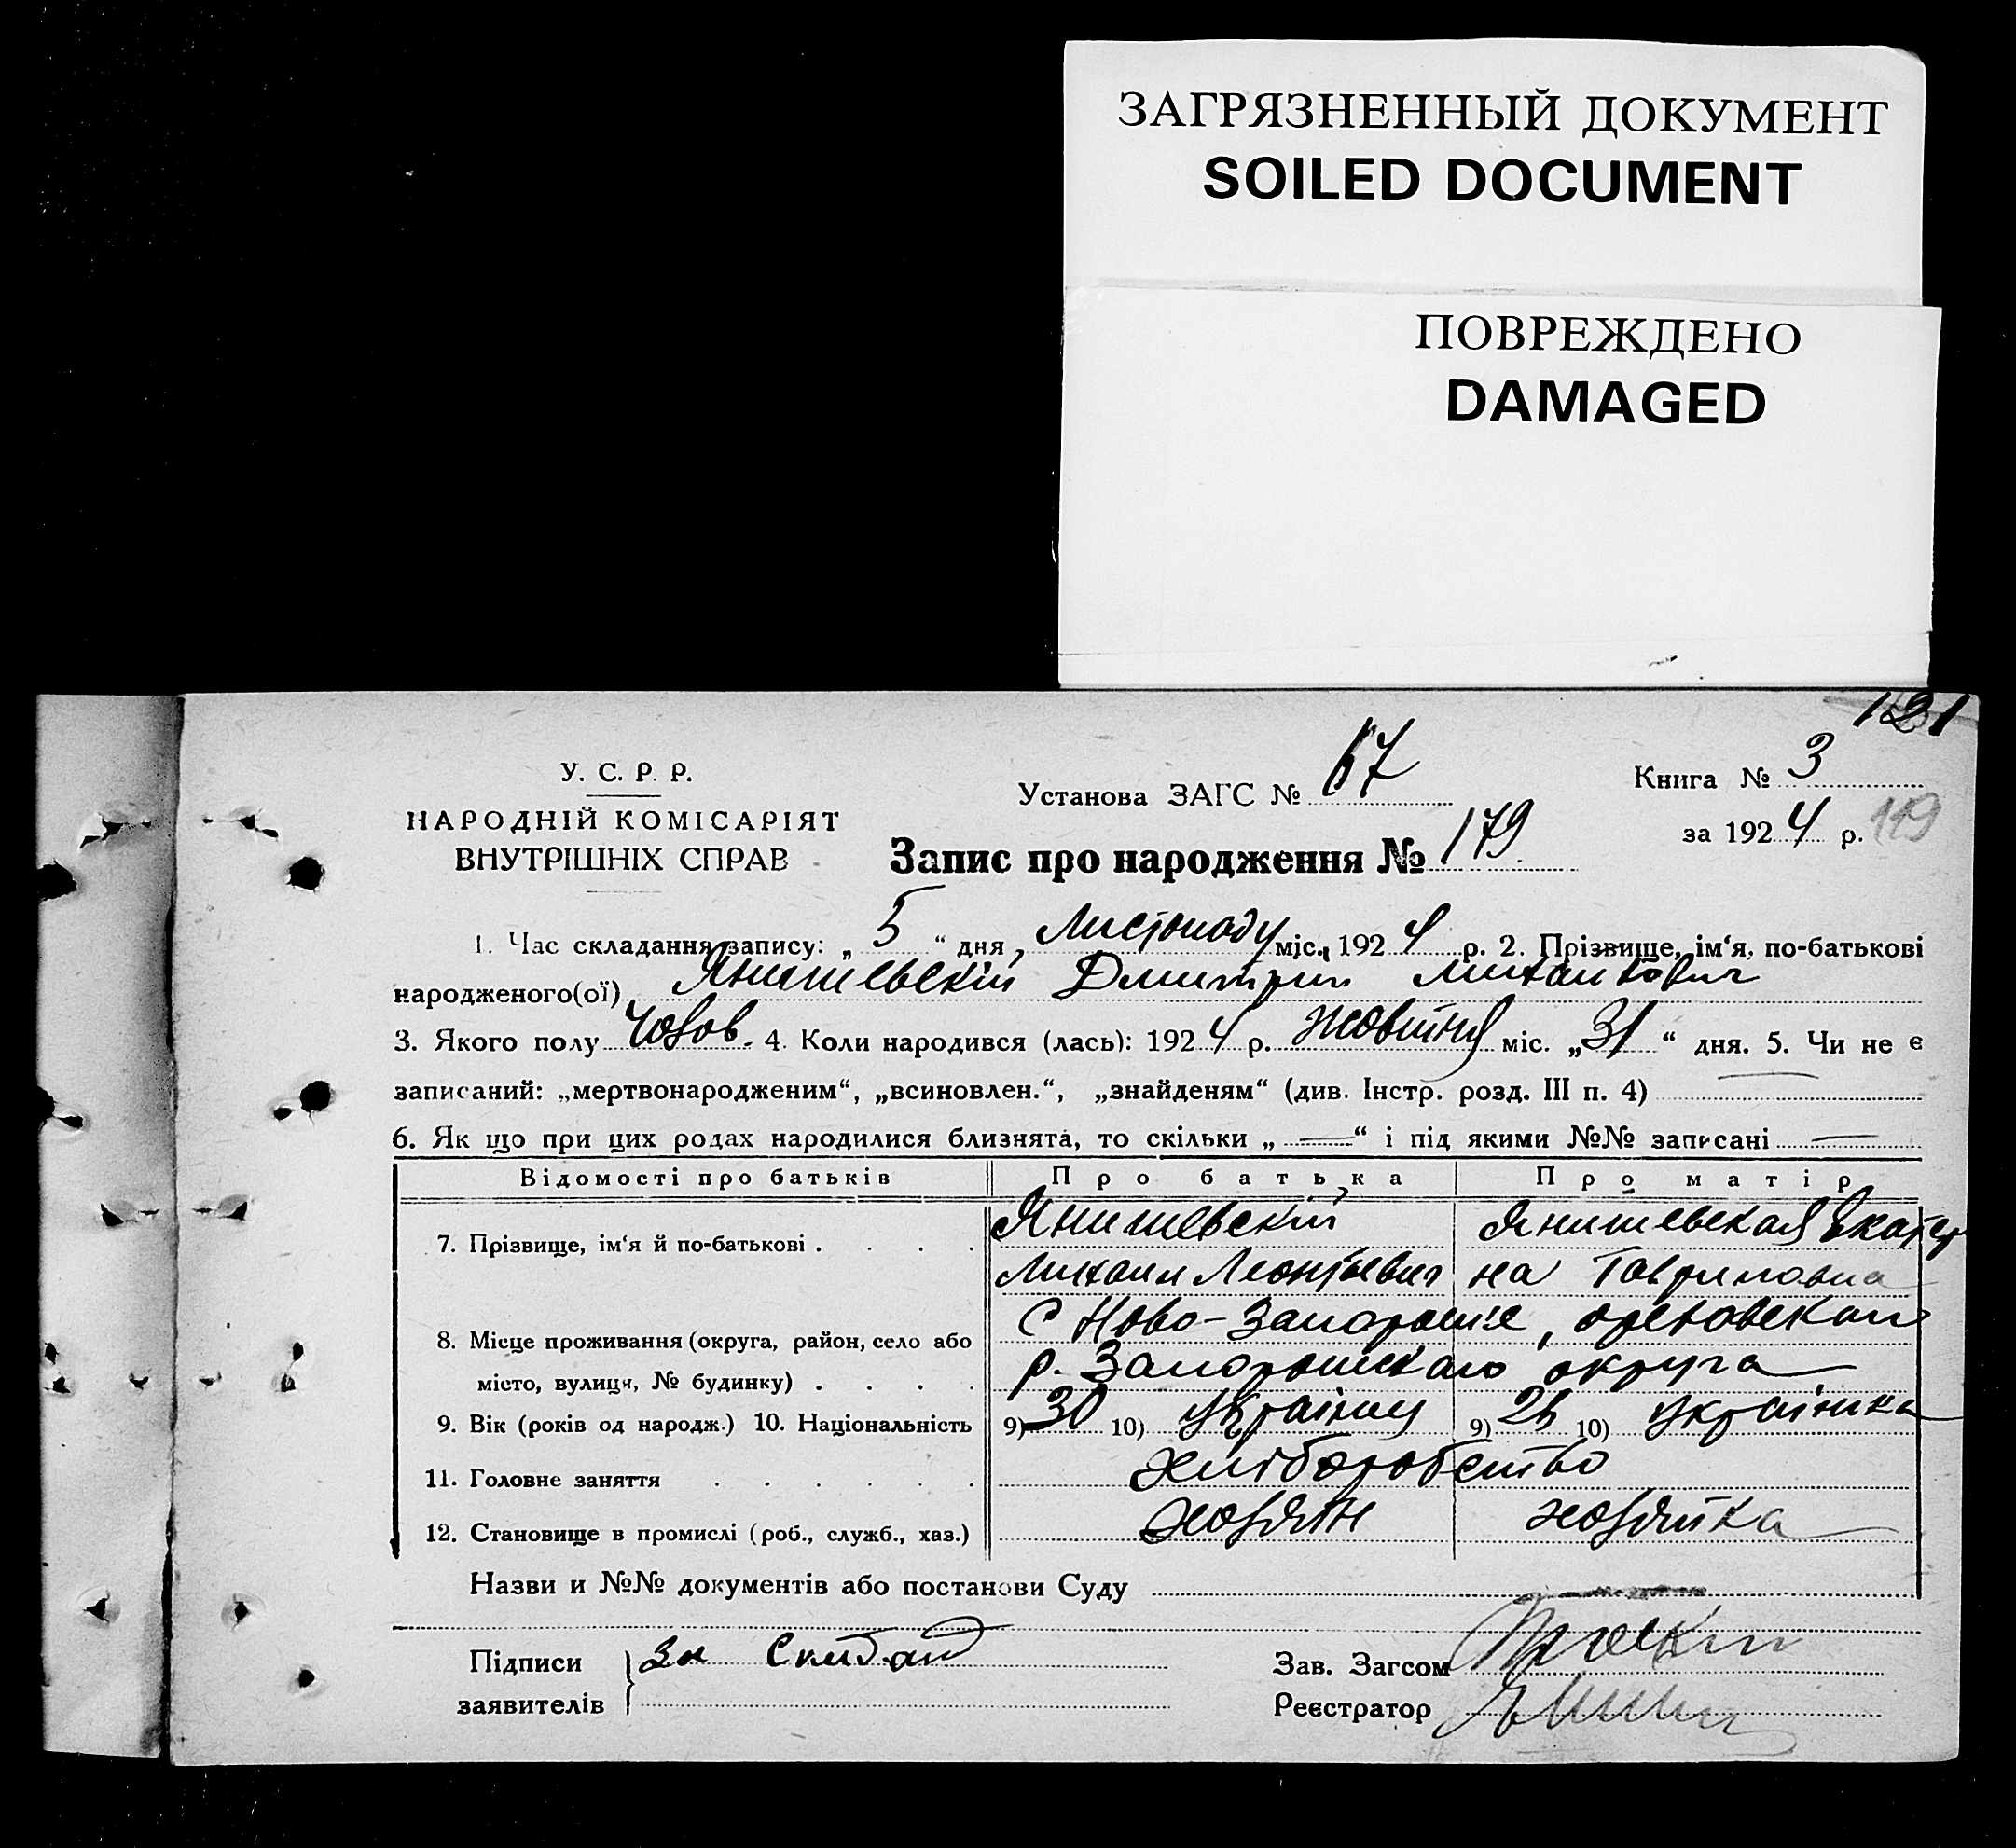 ЗАГРЯЗНЕННЫЙ ДОКУМЕНТ
SOILED DOCUMENT
ПОВРЕЖДЕНО
DAMAGED
121
У. С. Р. Р.
НАРОДНІЙ КОМІСАРІЯТ
ВНУТРІШНІХ СПРАВ
Установа ЗАГС № 67
Книга № 3
за 1924 р. 119
Запис про народження № 179
1. Час складання запису: „5“ дня, Листопаду міс., 1924 р. 2. Прізвище, ім‘я, по-батькові
народженого(ої) Янишевскій Дмитрий Михайлович
3. Якого полу Чолов. 4. Коли народився (лась): 1924 р. Жовтня міс. „31“ дня. 5. Чи не є
записаний: „мертвонародженим“, „всиновлен.“, „знайденям“ (див. Інстр. розд. III п. 4)
6. Як що при цих родах народилися близнята, то скільки „—“ і під якими №№ записані —
Відомості про батьків Про батька Про матір
7. Прізвище, ім‘я й по-батькові . . . . Янишевскій Янишевская Екатер
Михаил Леонтьевич на Гавриловна
8. Місце проживання (округа, район, село або С Ново-Запорожье, Ореховскаго
місто, вулиця, № будинку) . . . . р. Запорожскаго округа
9. Вік (років од народж.) 10. Національність 9) 30 10) Українец 9) 26 10) Українка
11. Головне заняття . . . . . . Хліборобство
12. Становище в промислі (роб., служб., хаз.) хозяин хозяйка
Назви и №№ документів або постанови Суду
Підписи
заявителів
Зав. Загсом
Реєстратор